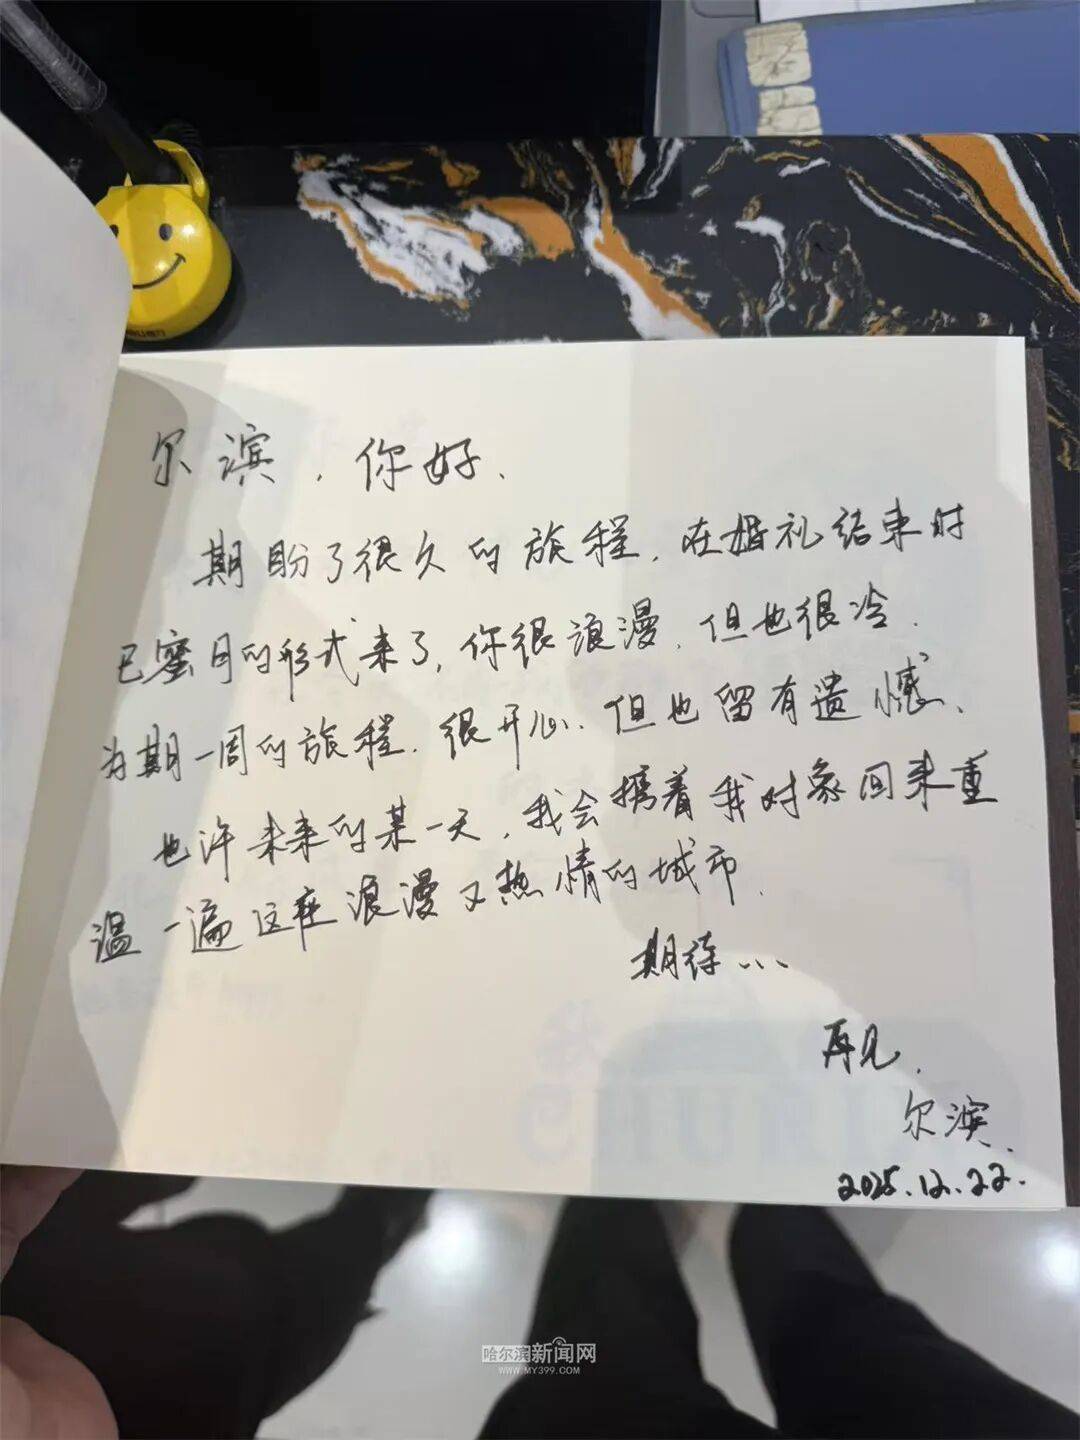 尔滨，你好.
期盼了很久的旅程，在婚礼结束时
已蜜月的形式来了，你很浪漫，但也很冷.
为期一周的旅程，很开心，但也留有遗憾、
也许未来的某一天，我会携着我对象回来重
温一遍这座浪漫又热情的城市.
期待...
再见.
尔滨.
2025.12.22.
哈尔滨新闻网
WWW.MY399.COM